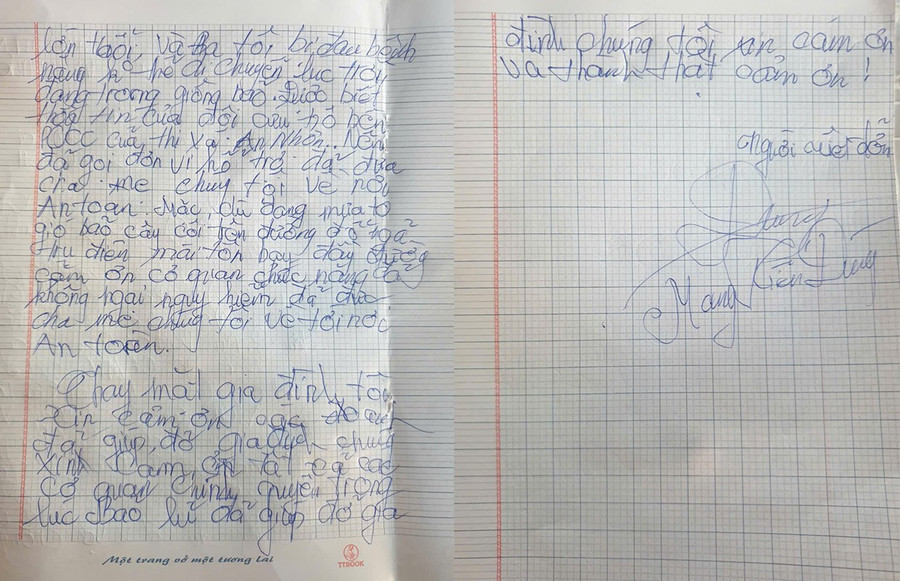 lớn tuổi, và ba tôi bị đau bệnh
nặng k hể di chuyển lúc trời
đang trong giông bão. Được biết
thông tin của đội cứu hộ bên
PCCC của thị xã An Nhơn. Nên
đã gọi đơn vị hổ trợ đã đưa
cha mẹ chúng tôi về nơi
An toàn. Mặc dù đang mưa to
gió bão cây cối trên đường đã ngã
trụ điện mái tôn bay đầy đường
cảm ơn cơ quan chức năng đã
không ngại nguy hiểm đã đưa
cha mẹ chúng tôi về tới nơi
An toàn.
Thay mặt gia đình tôi
Xin cảm ơn các
đã giúp đỡ gia đình chúng
Xin cảm ơn tất cả các
cơ quan chính quyền trong
lúc Bảo lũ đã giúp đỡ gia
Một trang vở một tương lai
TTBOOK
đình chúng tôi xin cảm ơn
và thành thật cảm ơn!
Người viết đơn
Dung
Mang Tiến Dũng